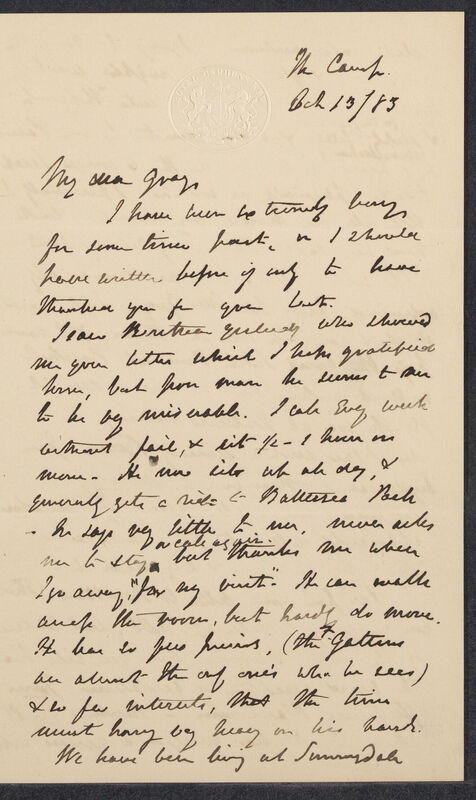 The Camp.
Oct 13/83
My dear Gray
I have been extremely busy
for some time past, or I should
have written before if only to have
thanked you for your last.
I saw Bentham yesterday who showed
me your letter which I hope gratified
him, but poor man he seems to me
to be very miserable. I call every week
without fail, & sit ½ - 1 hour or
more - He now sits up all day, &
generally gets a ride to Battersea Park
- He says very little to me, never asks
me to stay or call again. but thanks me when
I go away, "for my visit". He can walk
across the room, but hardly do more.
He has so few friends, (the Gattens
are almost the only one's who he sees)
& so few interests, that the time
must hang very heavy on his hands.
We have been living at Sunningdale